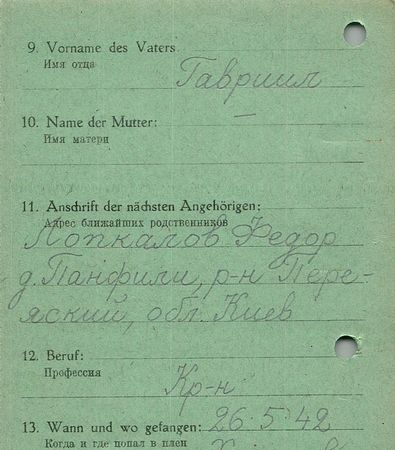 9. Vorname des Vaters:
Имя отца
Гавриил
10. Name der Mutter:
Имя матери
—
11. Anschrift der nächsten Angehörigen:
Адрес ближайших родственников
Лопкалов Федор
д. Панфили, р-н Пере-
яский, обл. Киев
12. Beruf:
Профессия
Кр-н
13. Wann und wo gefangen: 26.5.42
Когда и где попал в плен